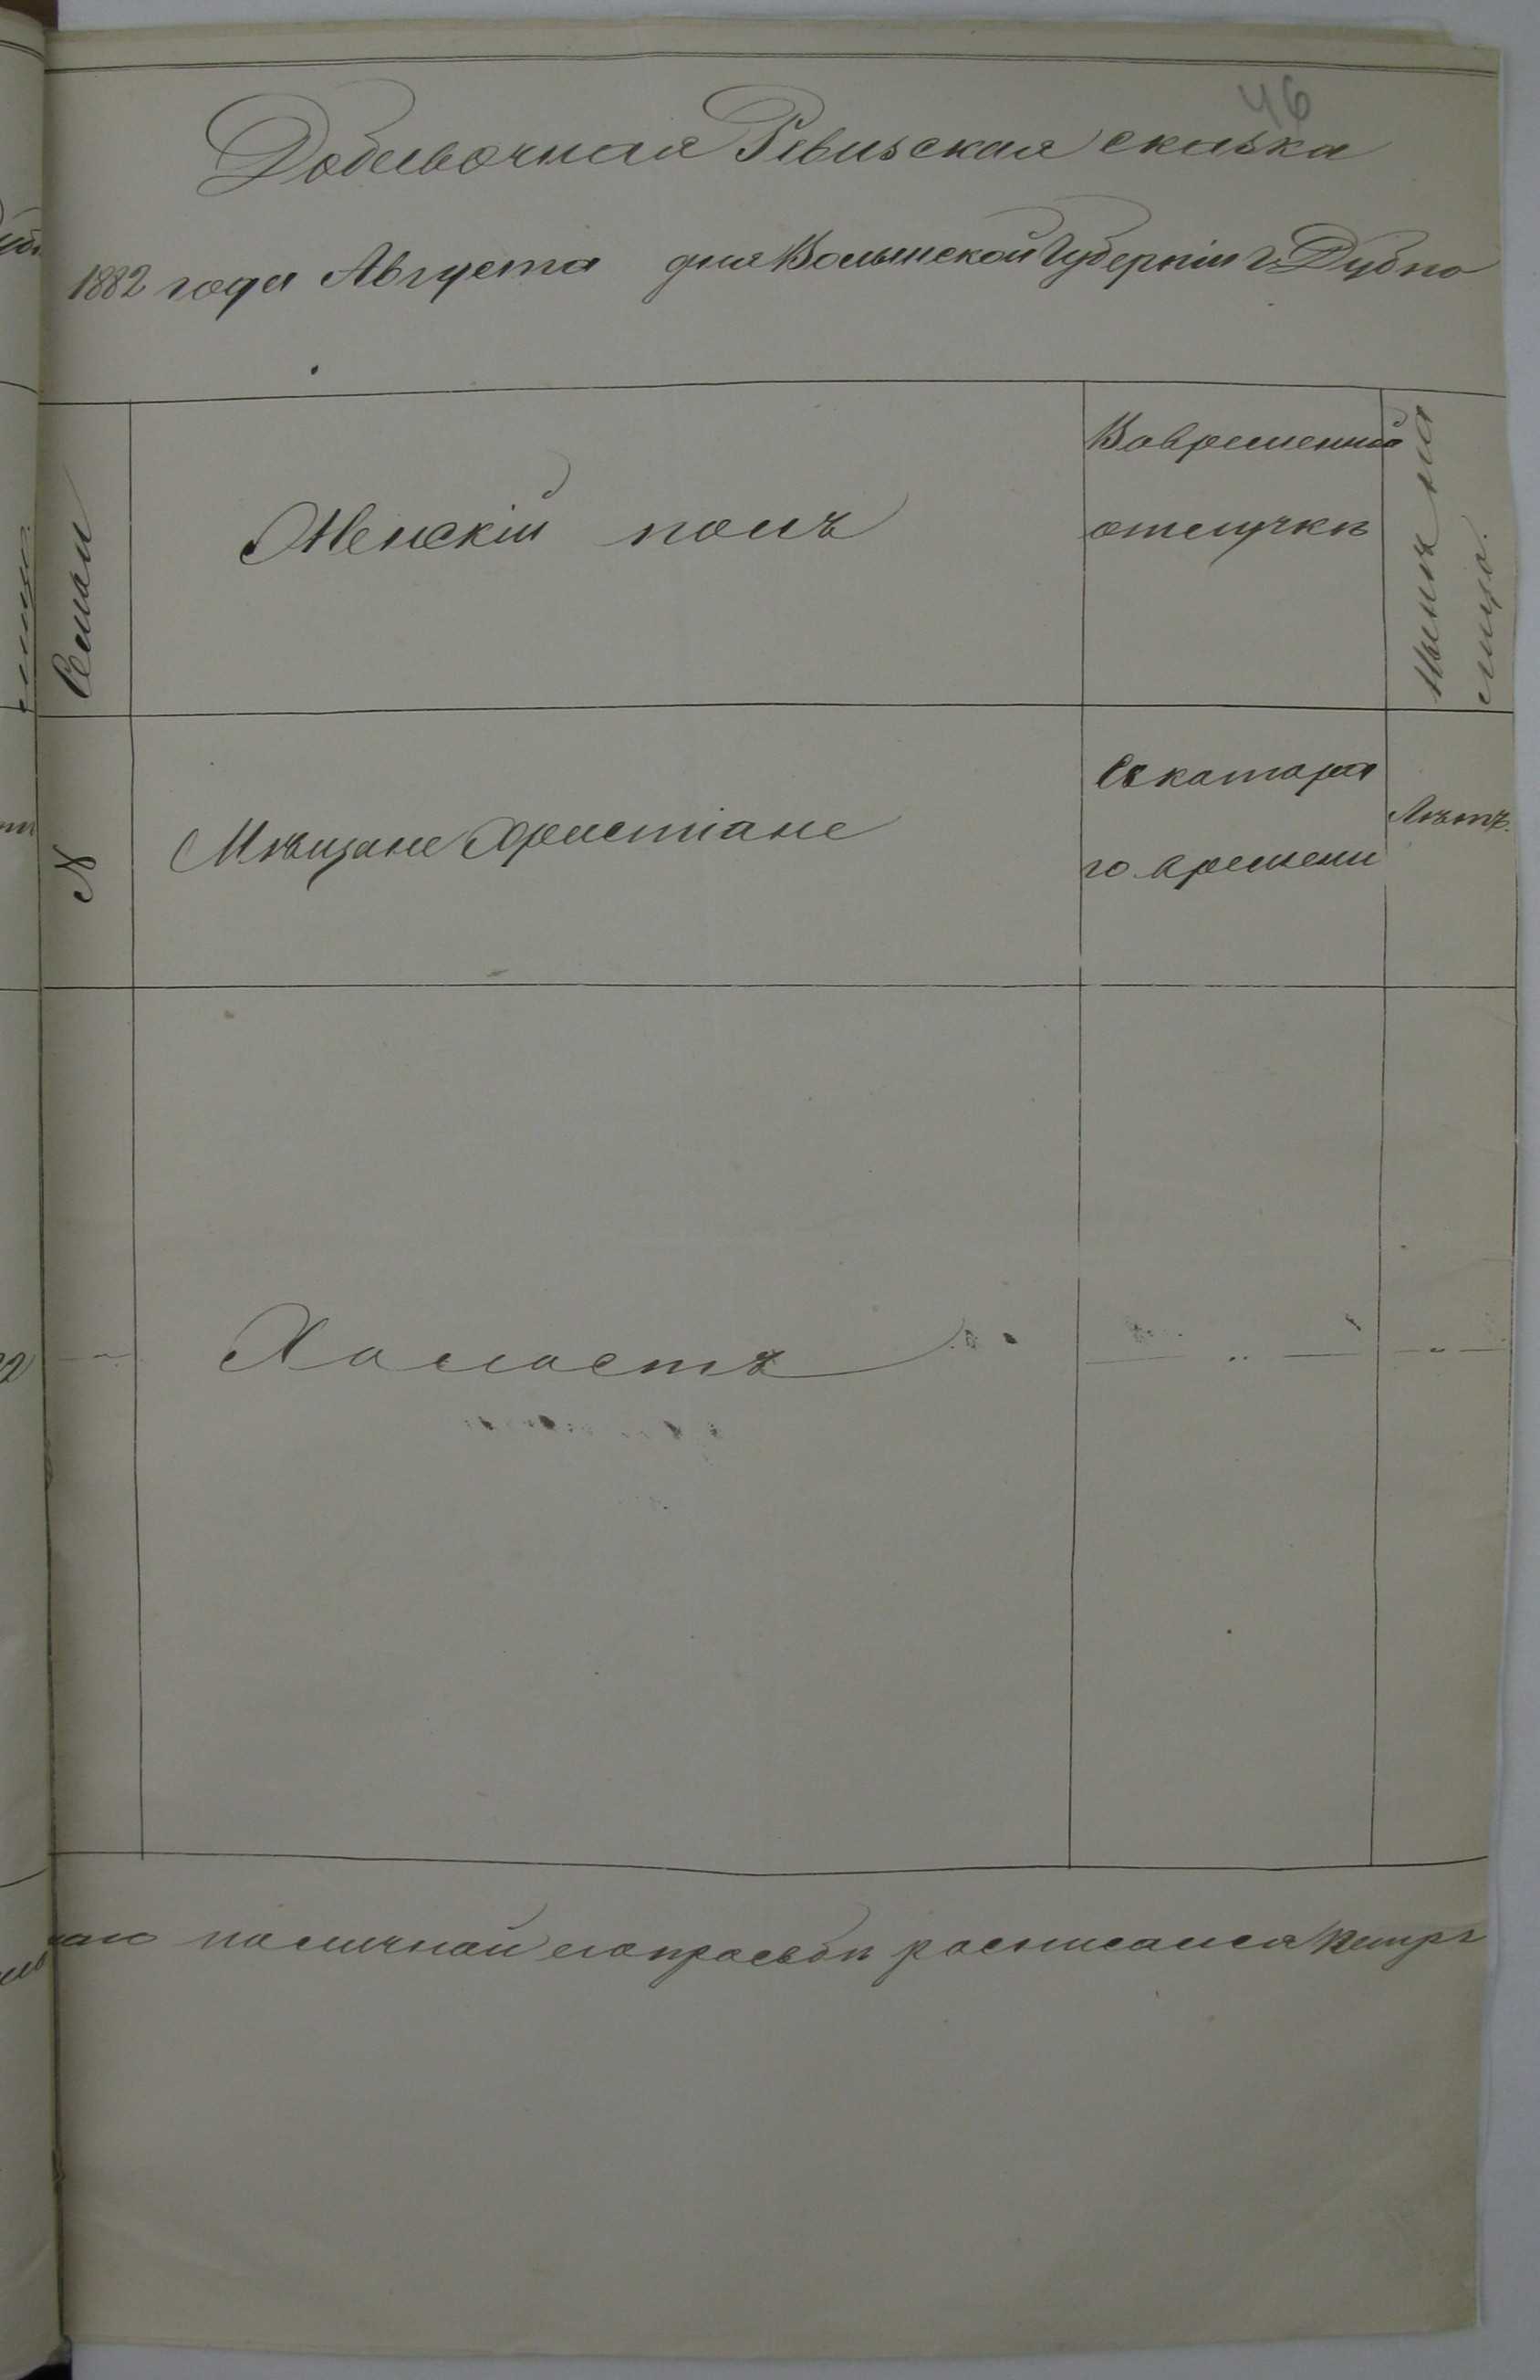 46
Добавочная Ревизская сказка
1882 года Августа дня Волынской Губерніи г. Дубно
Семьи
Женскій полъ
Вовременной
отлучкѣ
Нынѣ на
лицо.
№
Мѣщане Христіане
Съ котора
го времени
Лѣтъ.
Холостъ
поличной его прозьбѣ росписался Петръ